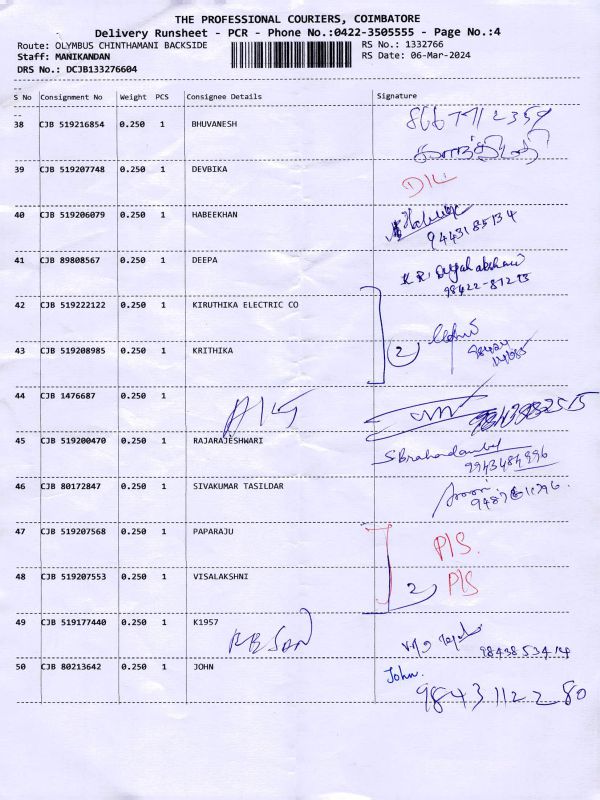 THE PROFESSIONAL COURIERS, COIMBATORE
Delivery Runsheet - PCR - Phone No.:0422-3505555 - Page No.:4
Route: OLYMBUS CHINTHAMANI BACKSIDE RS No.: 1332766
Staff: MANIKANDAN RS Date: 06-Mar-2024
DRS No.: DCJB133276604
S No Consignment No Weight PCS Consignee Details Signature
38 CJB 519216854 0.250 1 BHUVANESH
39 CJB 519207748 0.250 1 DEVBIKA
40 CJB 519206079 0.250 1 HABEEKHAN
9443185134
41 CJB 89808567 0.250 1 DEEPA
98422-81215
42 CJB 519222122 0.250 1 KIRUTHIKA ELECTRIC CO
2
43 CJB 519208985 0.250 1 KRITHIKA
44 CJB 1476687 0.250 1
45 CJB 519200470 0.250 1 RAJARAJESHWARI
46 CJB 80172847 0.250 1 SIVAKUMAR TASILDAR
47 CJB 519207568 0.250 1 PAPARAJU P/S.
48 CJB 519207553 0.250 1 VISALAKSHNI 2 P/S
49 CJB 519177440 0.250 1 K1957
9843853414
50 CJB 80213642 0.250 1 JOHN John.
98431122280